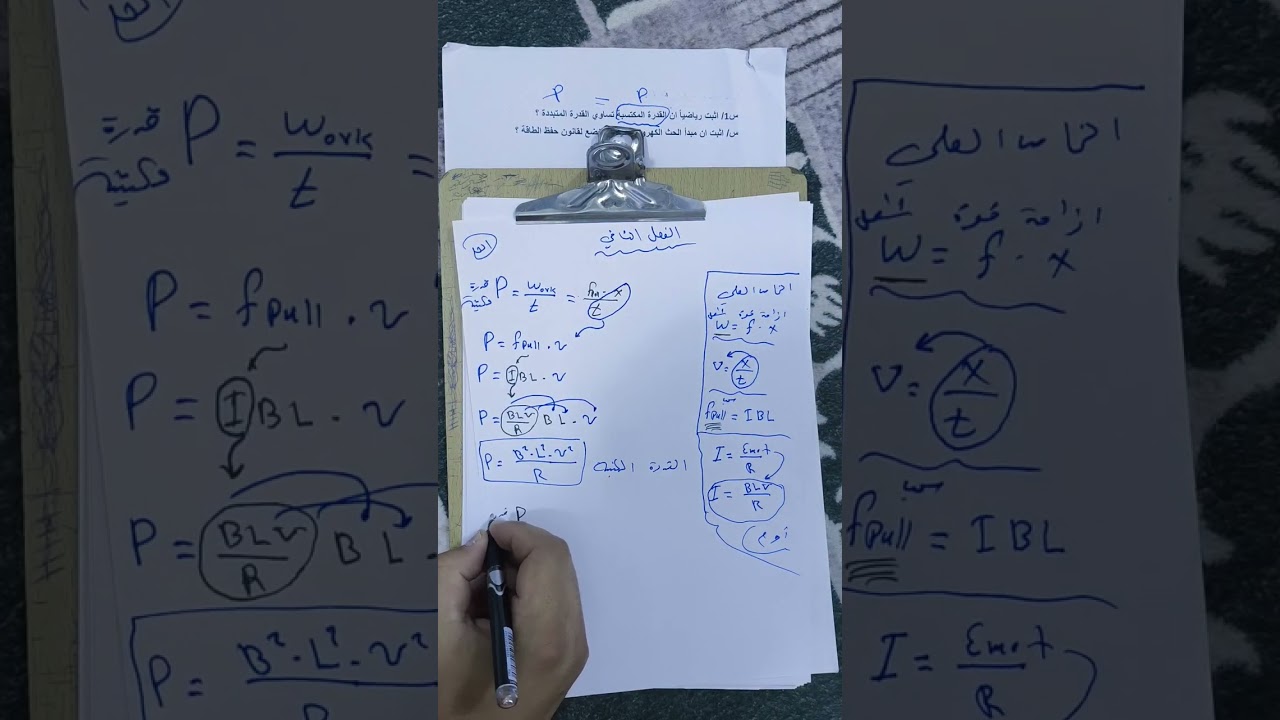 P = P
س1/ اثبت رياضياً ان القدرة المكتسبة تساوي القدرة المتبددة ؟
س/ اثبت ان مبدأ الحث الكهرو ضع لقانون حفظ الطاقة ؟
الفصل الثاني
P = Work/t = fpull . x/t
قدرة مكتسبة
P = fpull . v
P = I B L . v
P = BLv/R B L . v
P = B² . L² . v²/R القدرة المكتسبة
P
ازاحة قوة شغل
W = f . x
v = x/t
fpull = I B L
I = Emot/R
I = BLv/R
أوم